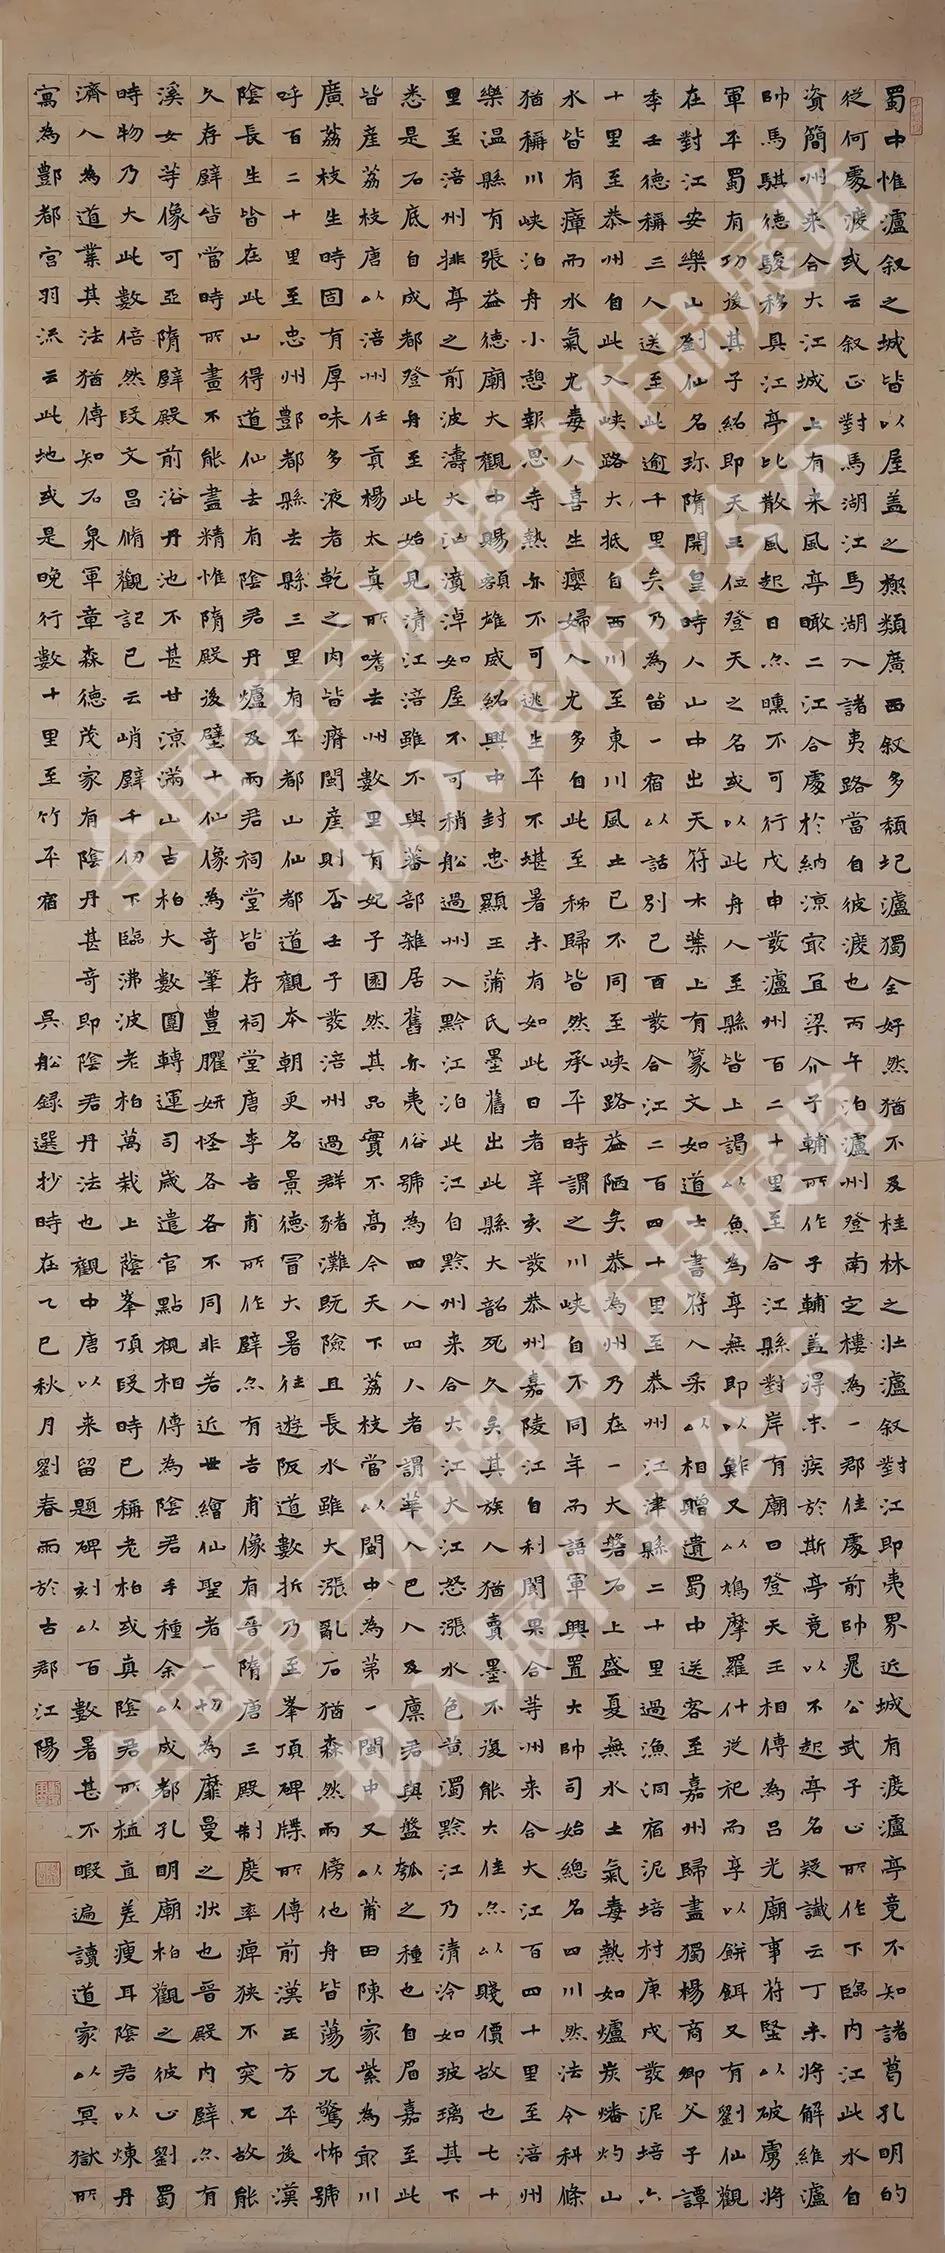 蜀中惟瀘叙之城皆以屋盖之極類廣西叙多頹圮瀘獨全好然猶不及桂林之壮瀘叙對江即夷界近城有渡瀘亭竟不知諸葛孔明的
從何處渡或云叙正對馬湖江馬湖入諸夷路當自彼渡也丙午泊瀘州登南定樓為一郡佳處前帥晁公武子止所作下臨内江此水自
資簡州来合大江城上有来風亭瞰二江合處於納涼冣宜梁介子輔所作子輔盖得末疾於斯亭竟以不起亭名疑讖云丁未将解維瀘
帥馬騏德駿移具江亭比散風起日亦曛不可行戊申發瀘州百二十里至合江縣對岸有廟曰登天王相傳為吕光廟事苻堅以破虜将
軍平蜀有功後其子紹即天王位登天之名或以此舟人至縣皆上謁以魚為享無即以鮓又以鳩摩羅什從祀而享以餅餌又有劉仙觀
在對江安樂山劉仙名珎隋開皇時人山中出天符木葉上有篆文如道士書符人采以相贈遺蜀中送客至嘉州歸盡獨楊商卿父子譚
季壬德稱三人送至此逾千里矣乃為留一宿以話别己酉發合江二百四十里至恭州江津縣二十里過漁洞宿泥培村庚戌發泥培六
十里至恭州自此入峡路大抵自西川至東川風土已不同至峡路益陋矣恭為州乃在一大磐石上盛夏無水土氣毒熱如爐炭燔灼山
水皆有瘴而水氣尤毒人喜生癭婦人尤多自此至秭歸皆然承平時謂之川峡自不同年而語軍興置大帥司始總名四川然法令科條
猶稱川峡泊舟小憩報恩寺熱亦不可逃生平不堪暑未有如此日者辛亥發恭州嘉陵江自利閬果合等州来合大江百四十里至涪州
樂温縣有張益德廟大觀中賜額雄威紹興中封忠顯王蒲氏墨舊出此縣大韶死久矣其族人猶賣墨不復能大佳亦以賤價故也七十
里至涪州排亭之前波濤大洶濆淖如屋不可稍船過州入黔江泊此江自黔州来合大江大江怒漲水色黄濁黔江乃清泠如玻璃其下
悉是石底自成都登舟至此始見清江涪雖不與蕃部雜居舊亦夷俗號為四人四人者謂華人巴人及廩君與盤瓠之種也自眉嘉至此
皆産荔枝唐以涪州任貢楊太真所嗜去州數里有妃子園然其品實不高今天下荔枝當以閩中為第一閩中又以莆田陳家紫為冣川
廣荔枝生時固有厚味多液者乾之肉皆瘠閩産則否壬子發涪州過群豬灘既險且長水雖大漲亂石猶森然兩傍他舟皆蕩兀驚怖號
呼百二十里至忠州酆都縣去縣三里有平都山仙都道觀本朝更名景德冒大暑往遊阪道數折乃至峯頂碑牒所傳前漢王方平後漢
陰長生皆在此山得道仙去有陰君丹爐及兩君祠堂皆存祠堂唐李吉甫所作壁亦有吉甫像有晋隋唐三殿制度率痺狭不突兀故能
久存壁皆當時所畫不能盡精惟隋殿後壁十仙像為奇筆豊臞妍怪各各不同非若近世繪仙聖者一切為靡曼之状也晋殿内壁亦有
溪女等像可亞隋壁殿前浴丹池不甚甘涼滿山古柏大數圍轉運司歲遣官點視相傳為陰君手種余以成都孔明廟柏觀之彼止劉蜀
時物乃大此數倍然段文昌脩觀記已云峭壁千仞下臨沸波老柏萬栽上蔭峯頂段時已稱老柏或真陰君所植直差瘦耳陰君以煉丹
濟人為道業其法猶傳知石泉軍章森德茂家有陰丹甚奇即陰君丹法也觀中唐以来留題碑刻以百數暑甚不暇遍讀道家以冥獄所
寓為酆都宫羽流云此地或是晚行數十里至竹平宿 吳船録選抄時在乙巳秋月劉春雨於古郡江陽
全国第三届隶书作品展览
拟入展作品公示
全国第三届隶书作品展览
拟入展作品公示